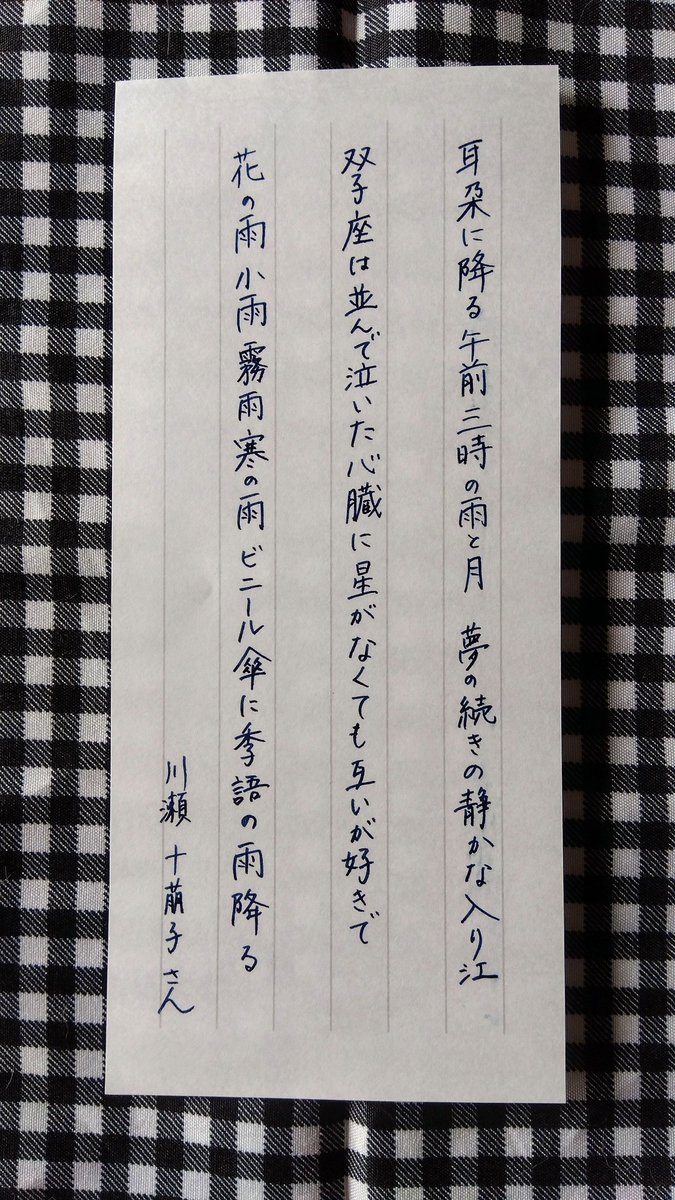 耳朶に降る午前三時の雨と月　夢の続きの静かな入り江
双子座は並んで泣いた心臓に星がなくても互いが好きで
花の雨小雨霧雨寒の雨ビニール傘に季語の雨降る
川瀬十萠子さん